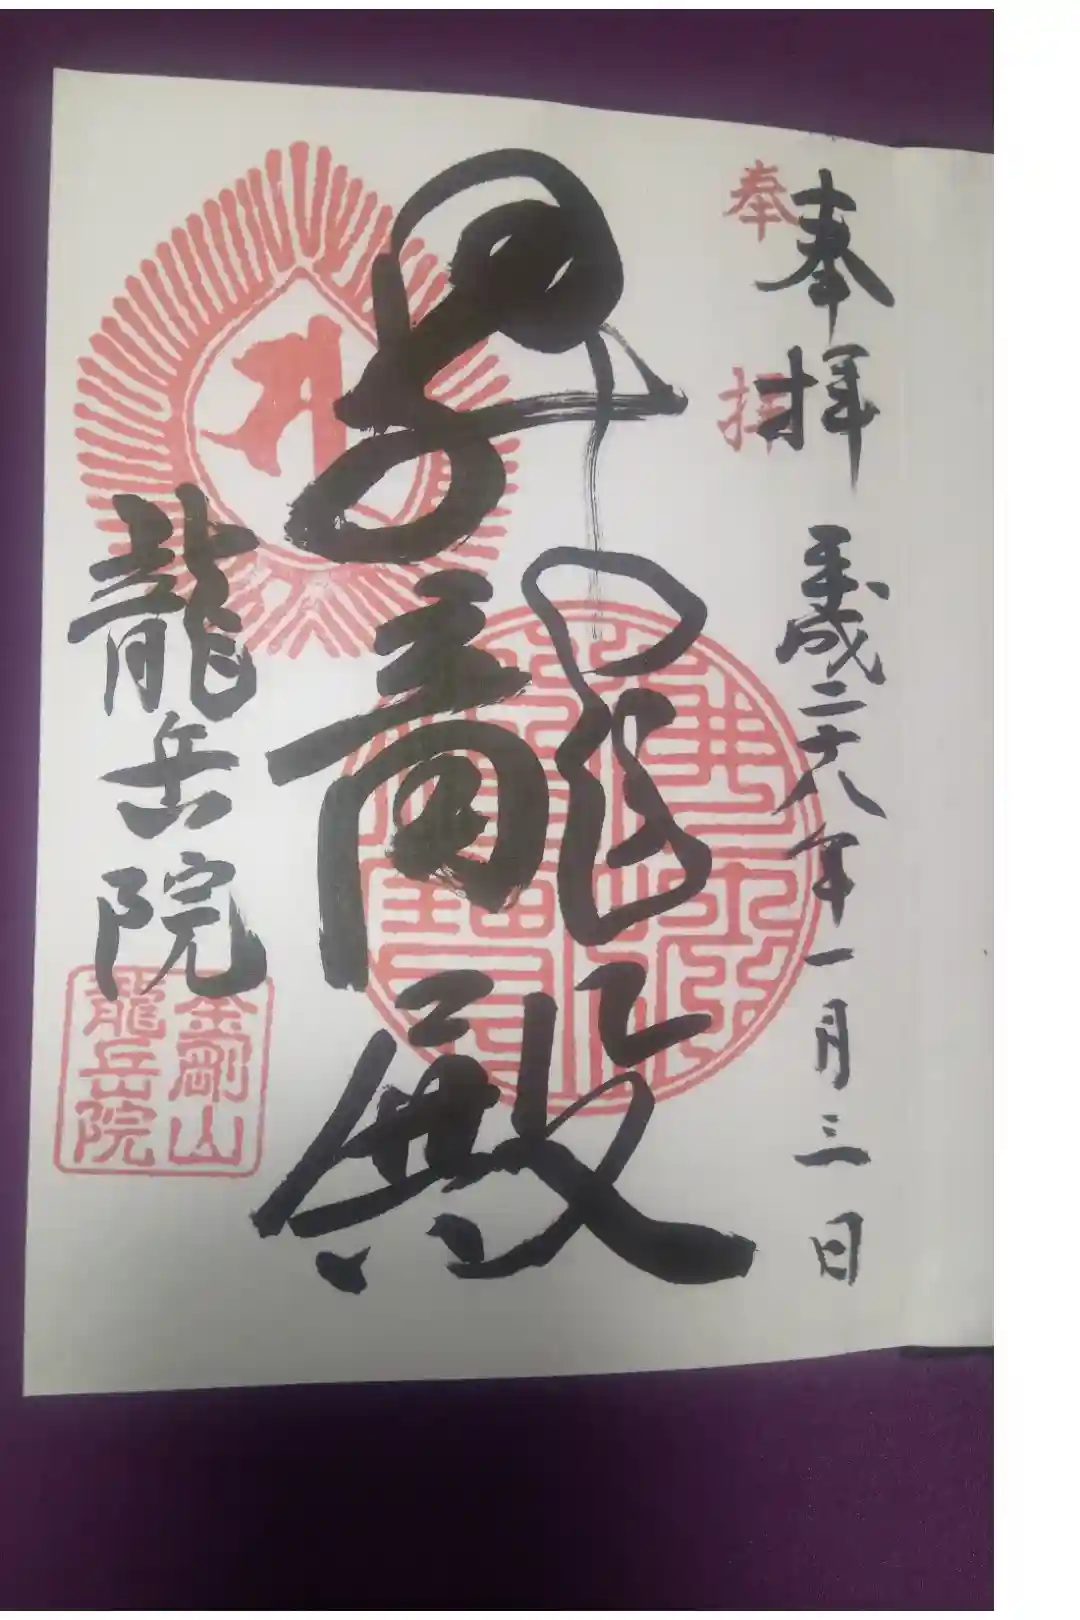 奉拝
奉拝 平成二十八年一月三日
龍殿
龍岳院
金剛山
龍岳院